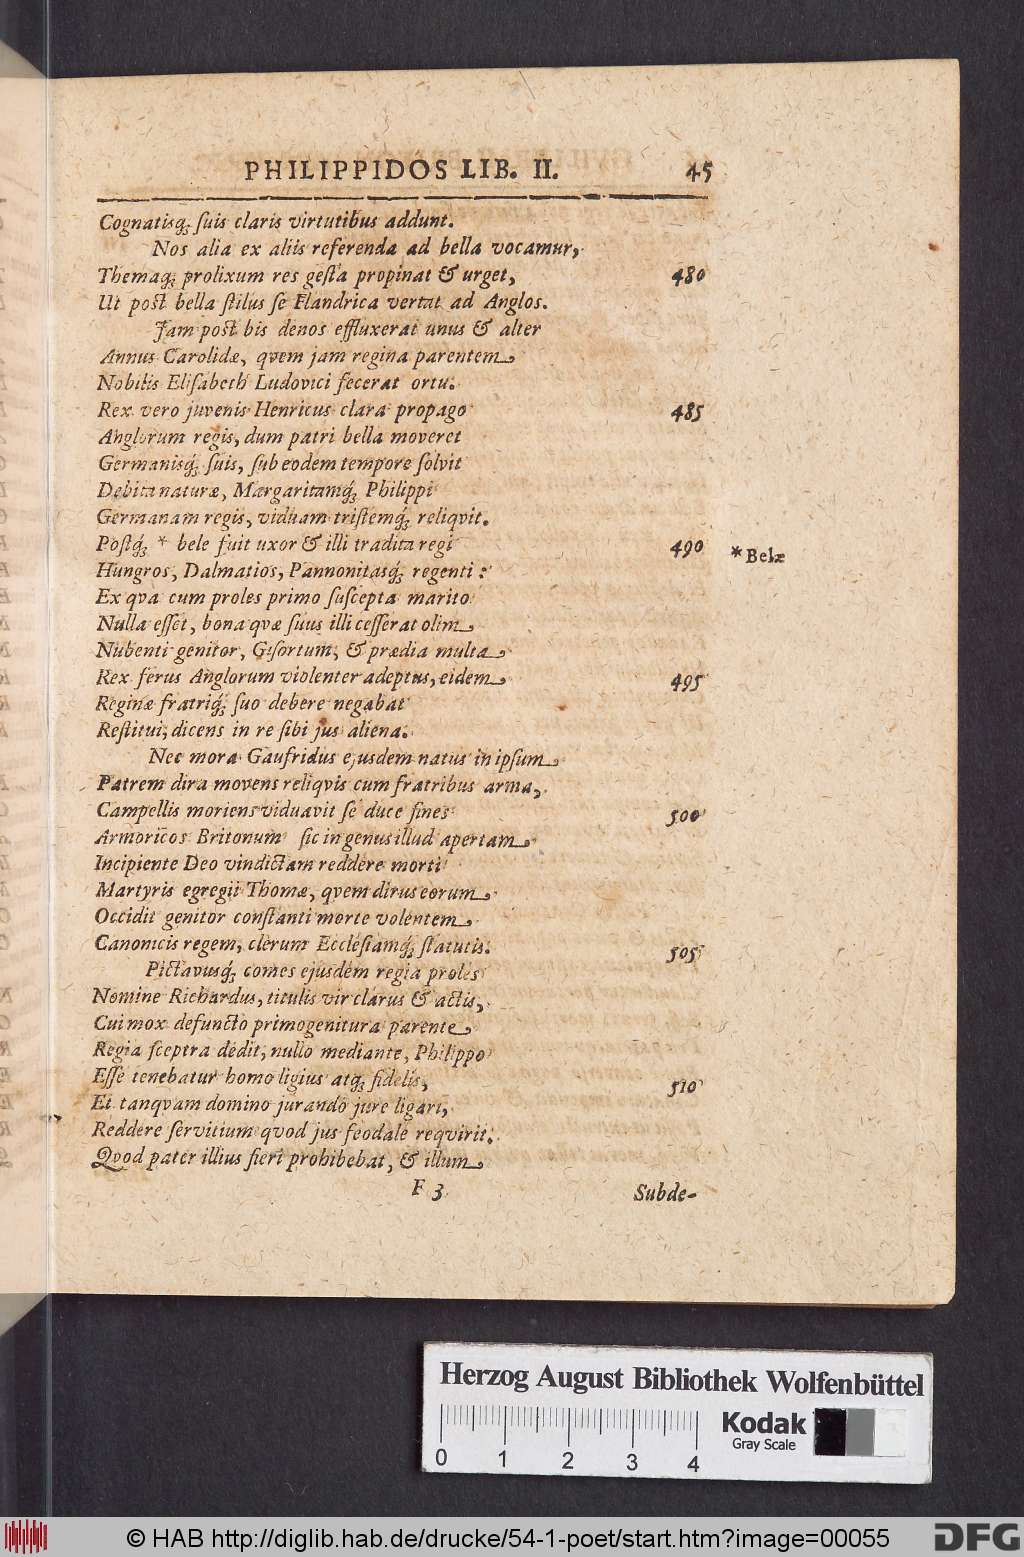 PHILIPPIDOS LIB. II. 45
Cognatisq; ſuis claris virtutibus addunt.
Nos alia ex aliis referenda ad bella vocamur,
Themaq; prolixum res geſta propinat & urget, 480
Ut poſt bella ſtilus ſe Flandrica vertat ad Anglos.
Jam poſt bis denos effluxerat unus & alter
Annus Carolidæ, qvem jam regina parentem
Nobilis Eliſabeth Ludovici fecerat ortu.
Rex vero juvenis Henricus clara propago 485
Anglorum regis, dum patri bella moveret
Germanisq; ſuis, ſub eodem tempore ſolvit
Debita naturæ, Margaritamq; Philippi
Germanam regis, viduam triſtemq; reliqvit.
Poſtq; * bele fuit uxor & illi tradita regi 490 *Belæ
Hungros, Dalmatios, Pannonitasq; regenti:
Ex qva cum proles primo ſuſcepta marito
Nulla eſſet, bona qvæ ſuus illi ceſſerat olim
Nubenti genitor, Giſortum, & prædia multa
Rex ferus Anglorum violenter adeptus, eidem 495
Reginæ fratriq; ſuo debere negabat
Reſtitui, dicens in re ſibi jus aliena.
Nec mora Gaufridus ejusdem natus in ipſum
Patrem dira movens reliqvis cum fratribus arma,
Campellis moriens viduavit ſe duce fines 500
Armoricos Britonum ſic in genus illud apertam
Incipiente Deo vindictam reddere morti
Martyris egregii Thomæ, qvem dirus eorum
Occidit genitor conſtanti morte volentem
Canonicis regem, clerum Eccleſiamq; ſtatutis. 505
Pictavusq; comes ejusdem regia proles
Nomine Richardus, titulis vir clarus & actis,
Cui mox defuncto primogenitura parente
Regia ſceptra dedit, nullo mediante, Philippo
Eſſe tenebatur homo ligius atq; fidelis, 510
Et tanqvam domino jurando jure ligari,
Reddere ſervitium qvod jus feodale reqvirit.
Qvod pater illius fieri prohibebat, & illum
F 3 Subde-
Herzog August Bibliothek Wolfenbüttel
Kodak
Gray Scale
0 1 2 3 4
© HAB http://diglib.hab.de/drucke/54-1-poet/start.htm?image=00055
DFG